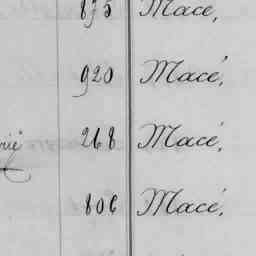 875 Macé,
920 Macé,
268 Macé,
806 Macé,